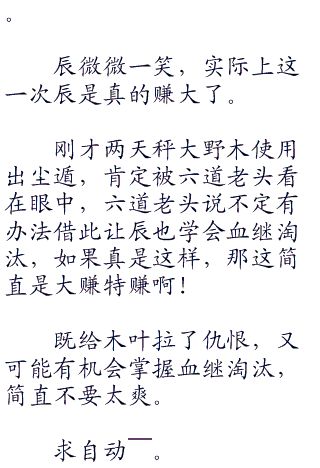 。
辰微微一笑，实际上这
一次辰是真的赚大了。
刚才两天秤大野木使用
出尘遁，肯定被六道老头看
在眼中，六道老头说不定有
办法借此让辰也学会血继淘
汰，如果真是这样，那这简
直是大赚特赚啊！
既给木叶拉了仇恨，又
可能有机会掌握血继淘汰，
简直不要太爽。
求自动￣。